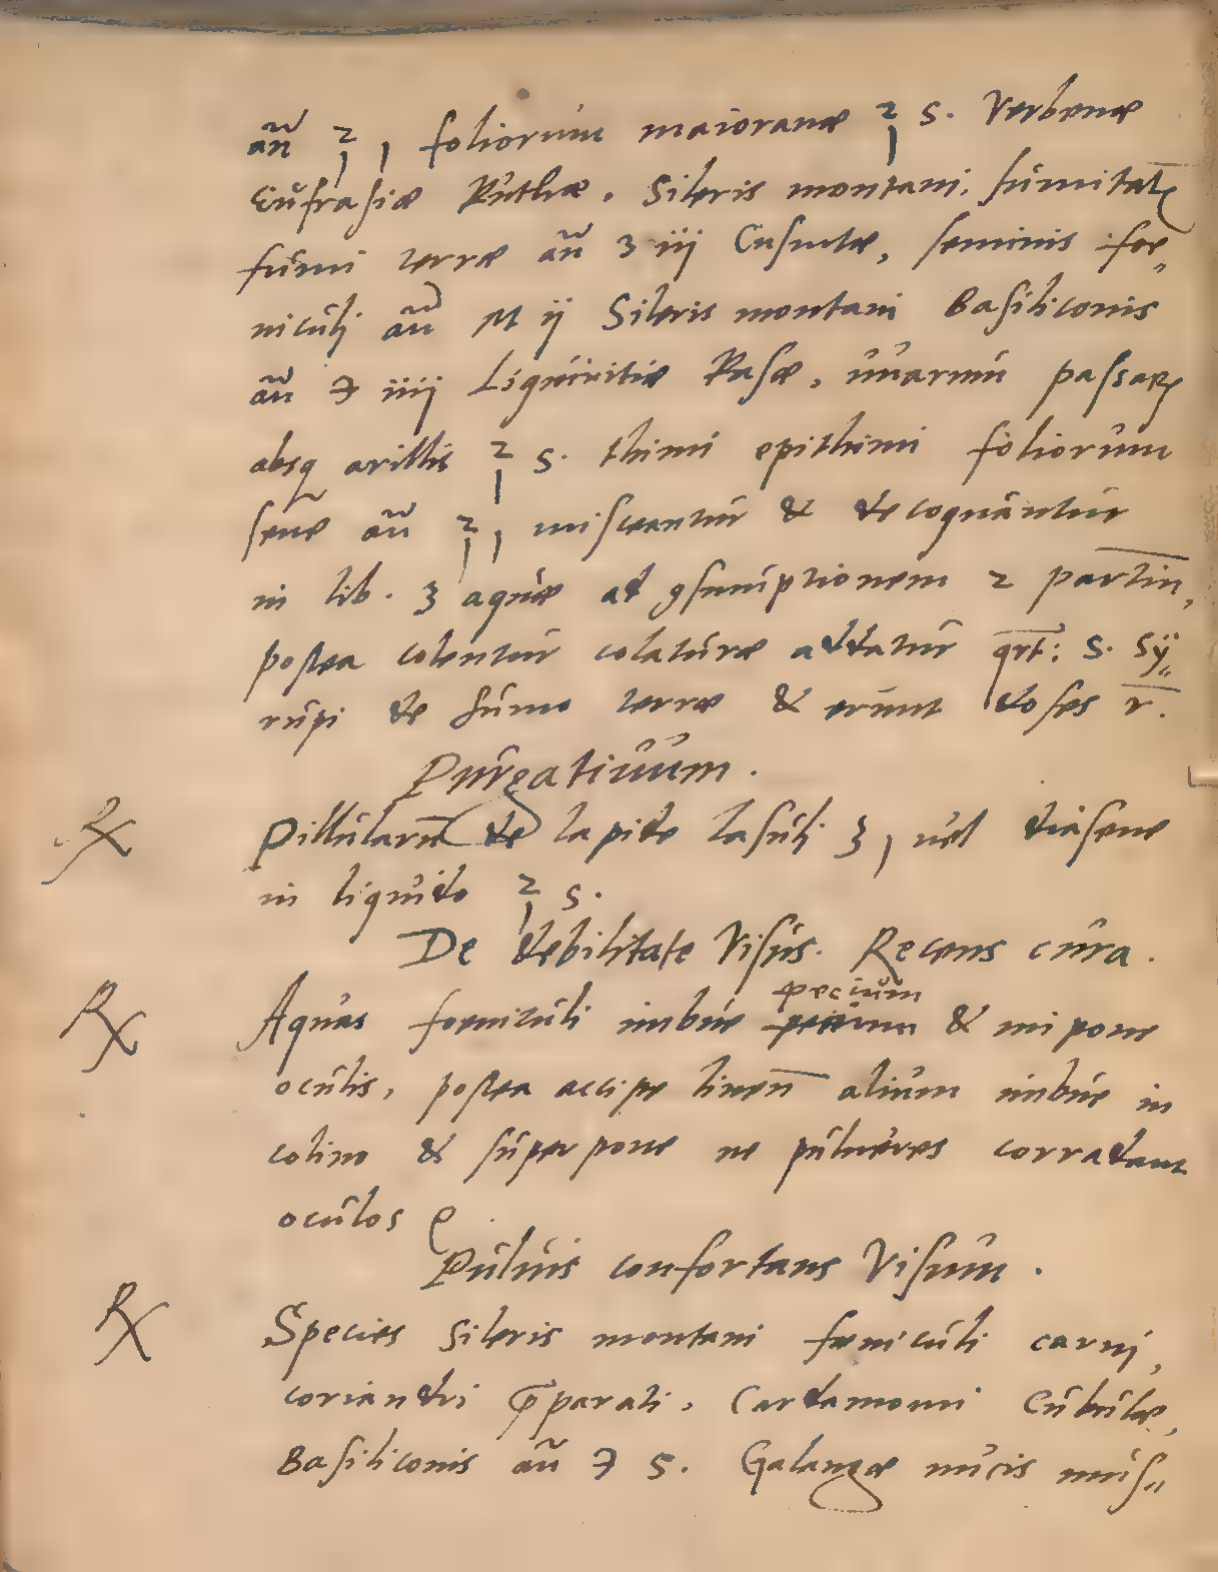 añ ℥ j foliorum maioranæ ℥ s. Verbenæ
Eufrasiæ Ruthæ, Sileris montani, sumitatꝫ
fumi terræ añ ʒ iij Cuscutæ, seminis foe,
niculj añ M ij Sileris montani Basiliconis
añ ℈ iiij Liquiritiæ Rasæ, uuarum passaꝝ
absqꝫ arillis ℥ s. thimi epithimi foliorum
senæ añ ℥ j, misceantur & decoquantur
in lib. 3 aquæ ad ꝯsumptionem 2 partiu̅,
postea colentur colaturæ addatur qrt: s. Sy„
rupi de fumo terræ & erunt doses r̅.
Purgatiuum.
℞ Pillularu̅ de lapide lasulj ʒ j uel diasene
in liquido ℥ s.
De debilitate Visus. Recens cura.
pecium
℞ Aquas foeniculi imbue & impone
oculis, postea accipe linen̅ alium imbue in
colino & superpone ne pulueres corradant
oculos
Puluis confortans Visum.
℞ Species Sileris montani fæniculi carui,
coriandri p̅parati, Cardamomi Cubulæ,
Basiliconis añ ℈ s. Galangæ nucis mus„